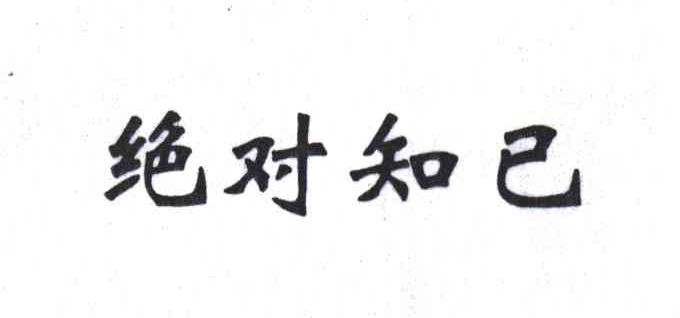 绝对知己